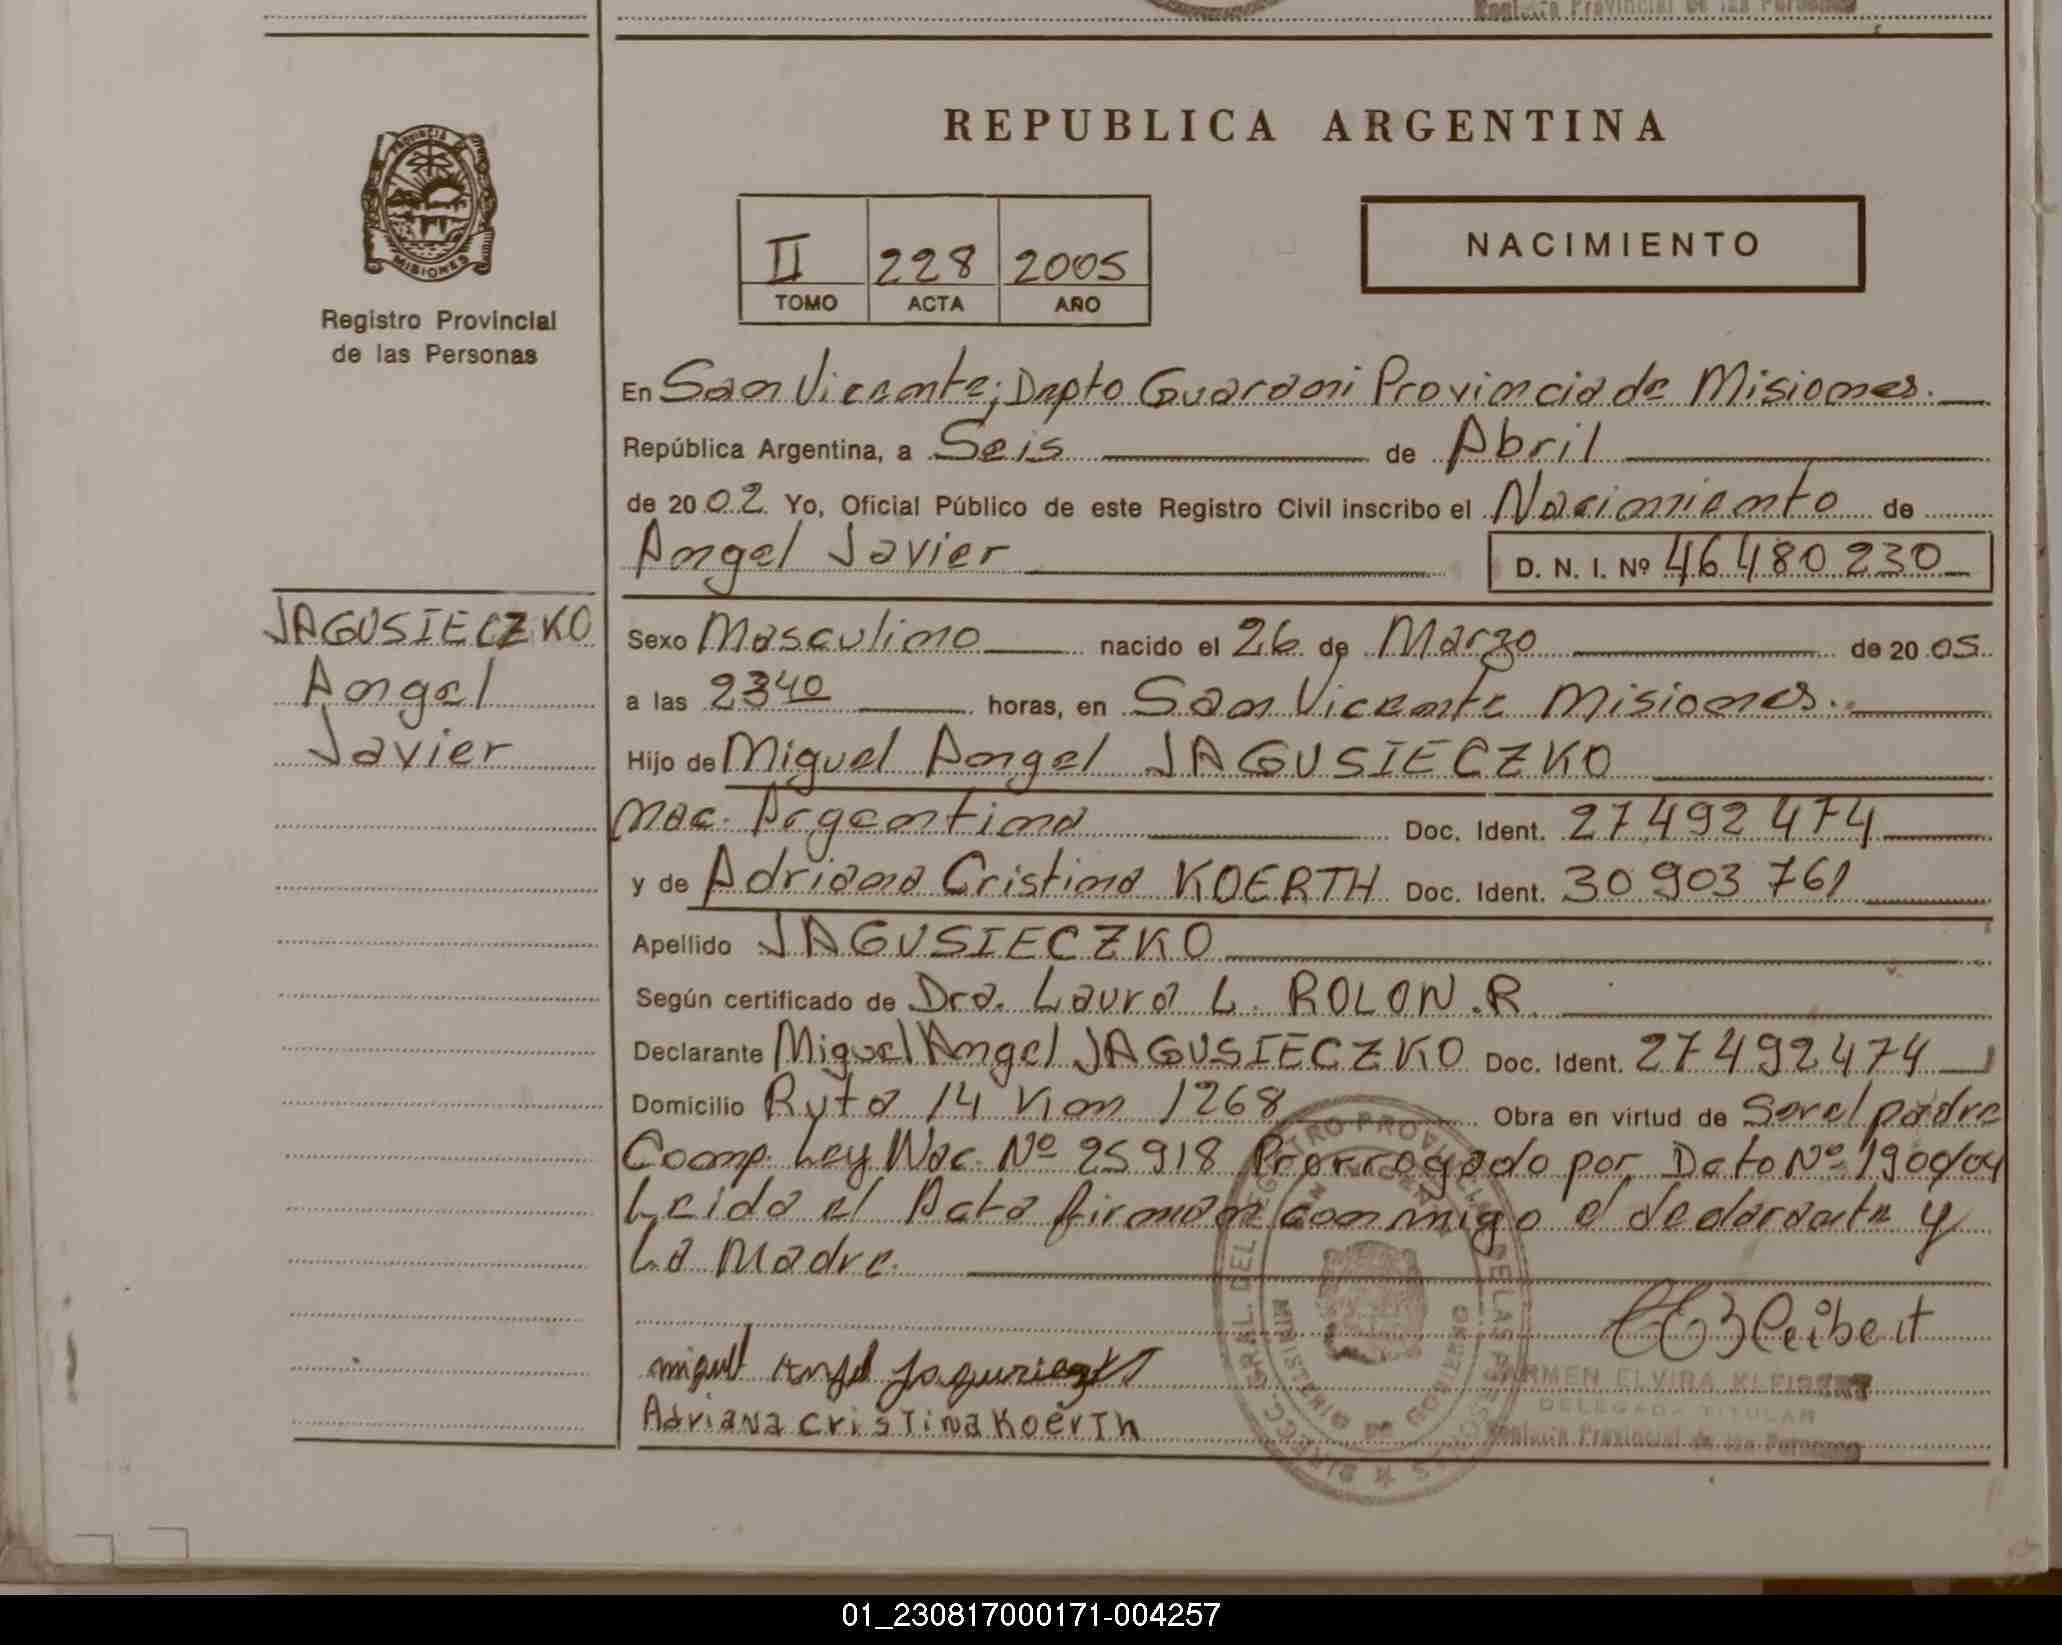 Registro Provincial de las Personas
REPUBLICA ARGENTINA
PROVINCIA DE
MISIONES
Registro Provincial
de las Personas
II 228 2005
TOMO ACTA AÑO
NACIMIENTO
En San Vicente; Depto Guarani Provincia de Misiones.
República Argentina, a Seis de Abril
de 2002 Yo, Oficial Público de este Registro Civil inscribo el Nacimiento de
Angel Javier D. N. I. Nº 46 480 230
JAGUSIECZKO
Angel
Javier
Sexo Masculino nacido el 26 de Marzo de 2005
a las 2340 horas, en San Vicente Misiones.
Hijo de Miguel Angel JAGUSIECZKO
Nac. Argentina Doc. Ident. 27 492 474
y de Adriana Cristina KOERTH Doc. Ident. 30 903 761
Apellido JAGUSIECZKO
Según certificado de Dra. Laura L. ROLON.R.
Declarante Miguel Angel JAGUSIECZKO Doc. Ident. 27 492 474
Domicilio Ruta 14 Km 1268 Obra en virtud de Ser el padre
Comp. Ley Nac. Nº 25 918 Prorrogado por Dcto Nº 1900/04
Leida el Acta firman conmigo el declarante y
La Madre.
miguel Angel
Adriana cristina Koerth
CARMEN ELVIRA KLEIBERT
DELEGADA TITULAR
Registro Provincial de las Personas
MINISTERIO DE GOBIERNO
01_230817000171-004257